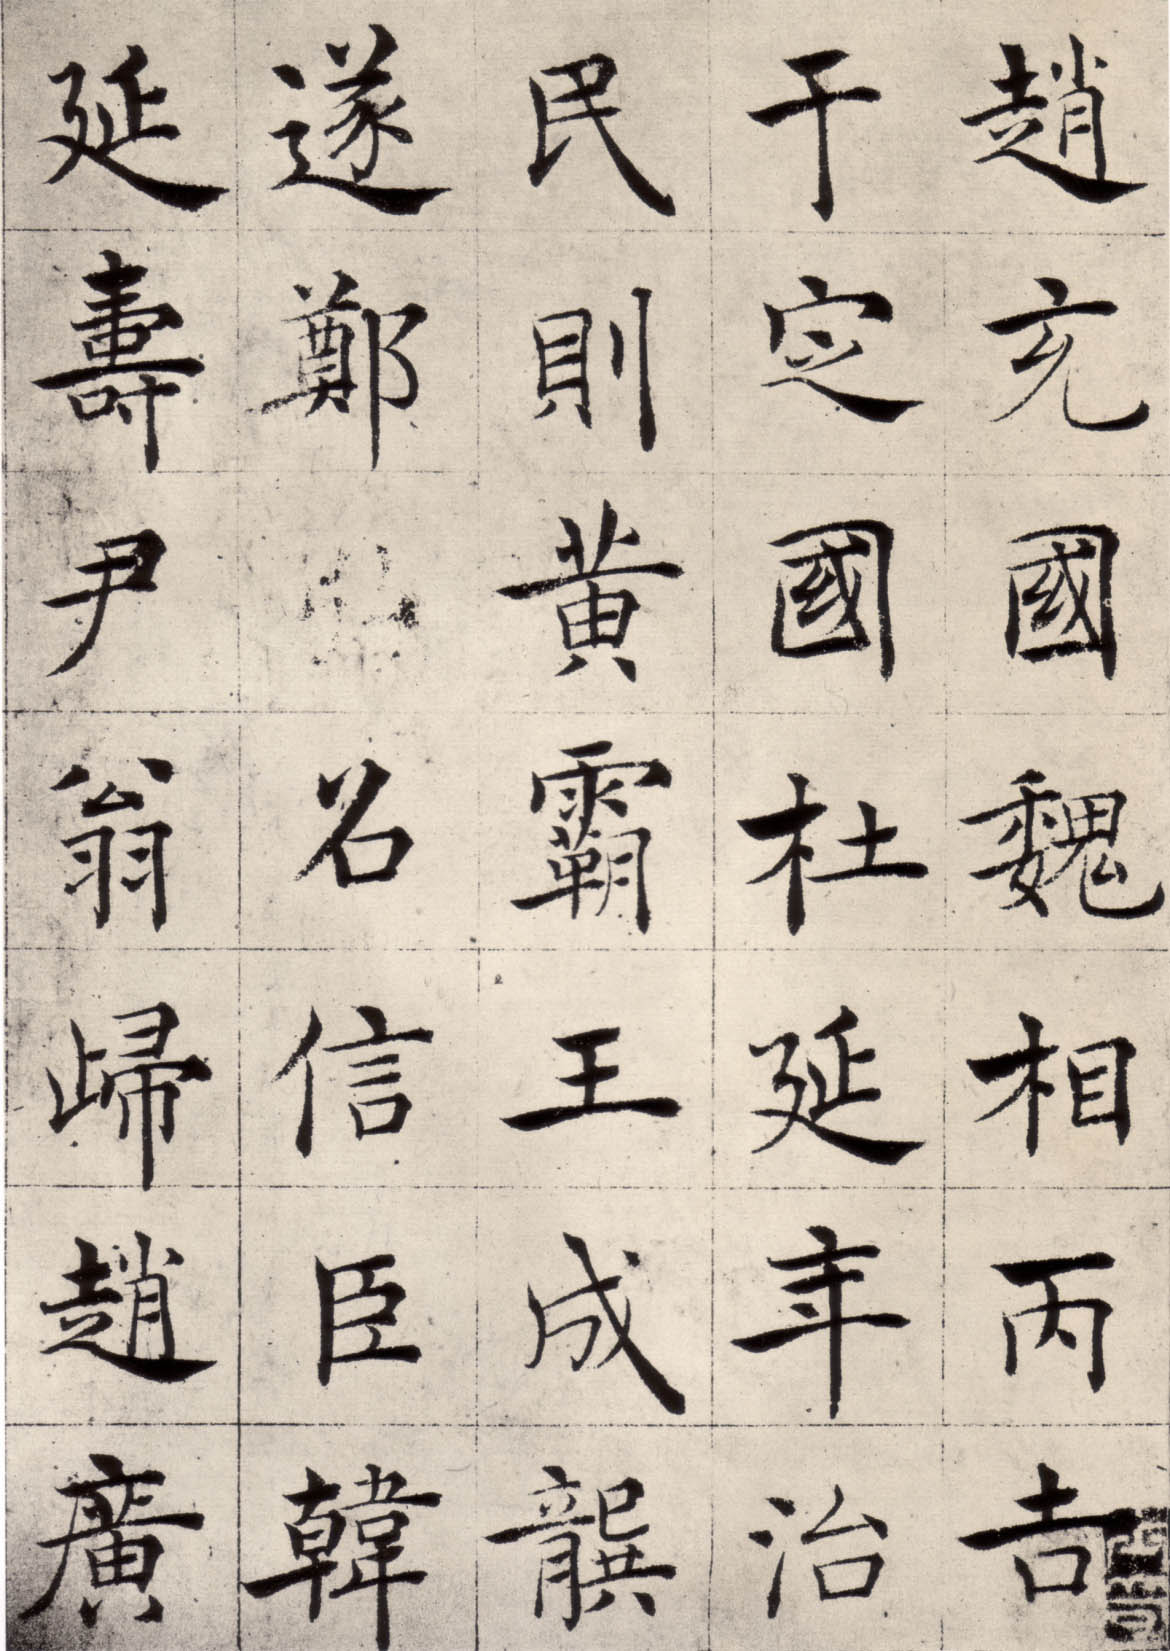 趙充國魏相丙吉
于定國杜延年治
民則黄霸王成龔
遂鄭名信臣韓
延壽尹翁歸趙廣